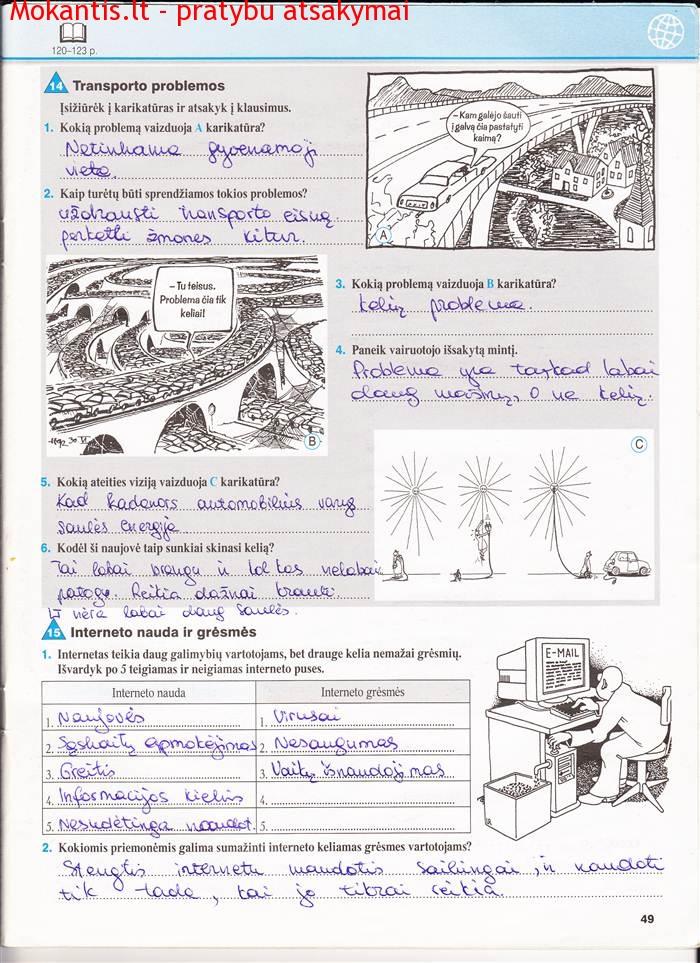 Mokantis.lt - pratybu atsakymai
120–123 p.
14 Transporto problemos
Įsižiūrėk į karikatūras ir atsakyk į klausimus.
1. Kokią problemą vaizduoja A karikatūra?
Netinkama gyvenamoji
vieta.
2. Kaip turėtų būti sprendžiamos tokios problemos?
uždrausti transporto eismą.
perkelti žmones kitur.
– Kam galėjo šauti
į galvą čia pastatyti
kaimą?
A
– Tu teisus.
Problema čia tik
keliai!
B
3. Kokią problemą vaizduoja B karikatūra?
kelių problema.
4. Paneik vairuotojo išsakytą mintį.
Problema yra tai, kad labai
daug mašinų, o ne kelių.
C
5. Kokią ateities viziją vaizduoja C karikatūra?
Kad kadanors automobilius varys
saulės energija
6. Kodėl ši naujovė taip sunkiai skinasi kelią?
Tai labai brangu ir tol kas nelabai
patogu. Reikia dažnai krauti.
Ir nėra labai daug saulės.
15 Interneto nauda ir grėsmės
1. Internetas teikia daug galimybių vartotojams, bet drauge kelia nemažai grėsmių.
Išvardyk po 5 teigiamas ir neigiamas interneto puses.
Interneto nauda Interneto grėsmės
1. Naujovės 1. Virusai
2. Sąskaitų apmokėjimas 2. Nesaugumas
3. Greitis 3. Vaikų išnaudojimas
4. Informacijos kiekis 4.
5. Nesudėtinga naudot. 5.
E-MAIL
2. Kokiomis priemonėmis galima sumažinti interneto keliamas grėsmes vartotojams?
Stengtis internetu naudotis saikingai, ir naudoti
tik tada, kai jo tikrai reikia.
49